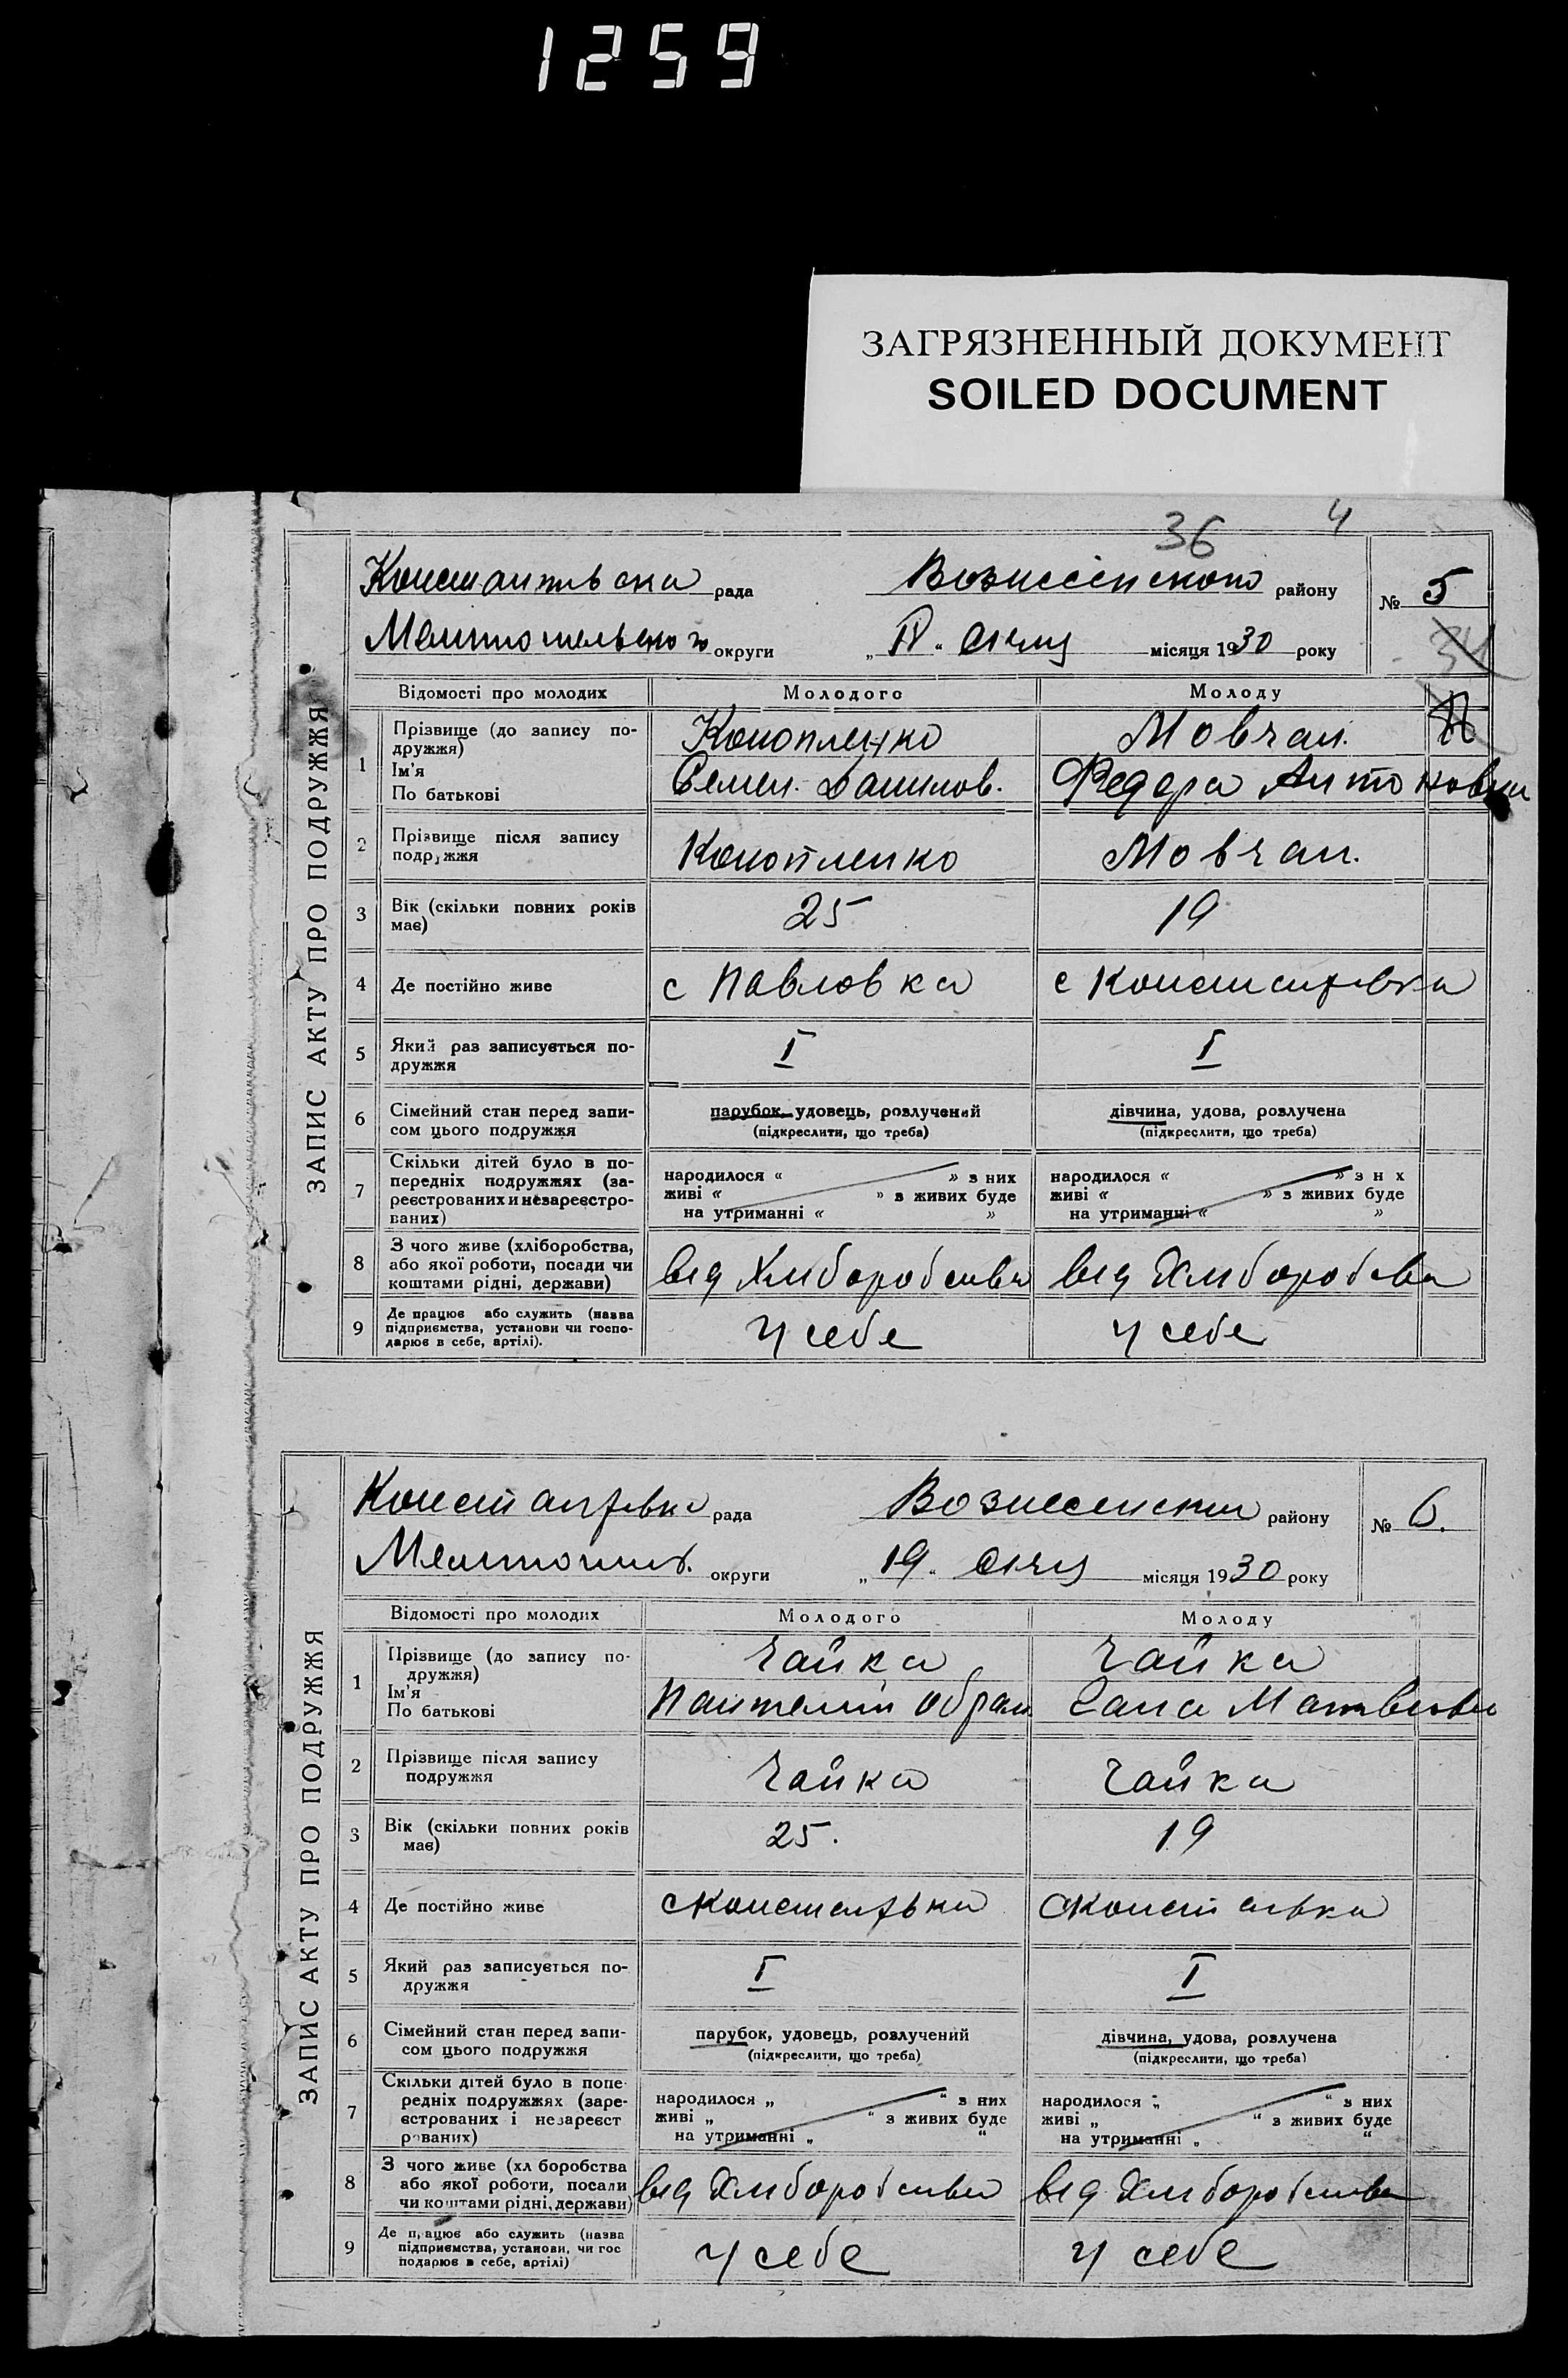 1259
ЗАГРЯЗНЕННЫЙ ДОКУМЕНТ
SOILED DOCUMENT
36 4
ЗАПИС АКТУ ПРО ПОДРУЖЖЯ
Константивська рада Вознесенского району № 5
Мелитопольского округи „ “ січня місяця 1930 року
Відомості про молодих Молодого Молоду
1 Прізвище (до запису по-дружжя) Конопленко Мовчан.
Ім'я
По батькові Семен Данилов. Федора Антоновна
2 Прізвище після запису подружжя Конопленко Мовчан.
3 Вік (скільки повних років має) 25 19
4 Де постійно живе с Павловка с Константовка
5 Який раз записується по-дружжя I I
6 Сімейний стан перед запи-сом цього подружжя парубок, удовець, розлучений дівчина, удова, розлучена
(підкреслити, що треба) (підкреслити, що треба)
7 Скільки дітей було в по-передніх подружжях (за-реєстрованих и незареєстро-ваних) народилося « » з них народилося « » з н х
живі « » з живих буде живі « » з живих буде
на утриманні « » на утриманні « »
8 З чого живе (хліборобства, або якої роботи, посади чи коштами рідні, держави) від Хлиборобства від Хлиборобства
9 Де працює або служить (назва підприємства, установи чи госпо-дарює в себе, артілі). у себе у себе
ЗАПИС АКТУ ПРО ПОДРУЖЖЯ
рада району № 6.
Мелитопиль. округи „ 19 “ січня місяця 1930 року
Відомості про молодих Молодого Молоду
1 Прізвище (до запису по-дружжя) Чайка Чайка
Ім'я
По батькові Пантелий Матвеевна
2 Прізвище після запису подружжя Чайка Чайка
3 Вік (скільки повних років має) 25. 19
4 Де постійно живе
5 Який раз записується по-дружжя I I
6 Сімейний стан перед запи-сом цього подружжя парубок, удовець, розлучений дівчина, удова, розлучена
(підкреслити, що треба) (підкреслити, що треба)
7 Скільки дітей було в попе-редніх подружжях (заре-єстрованих і незареєст рованих) народилося „ “ з них народилося „ “ з них
живі „ “ з живих буде живі „ “ з живих буде
на утриманні „ “ на утриманні „ “
8 З чого живе (хл боробства або якої роботи, посади чи коштами рідні, держави) від Хлиборобства від Хлиборобства
9 Де працює або служить (назва підприємства, установи, чи гос подарює в себе, артілі) у себе у себе